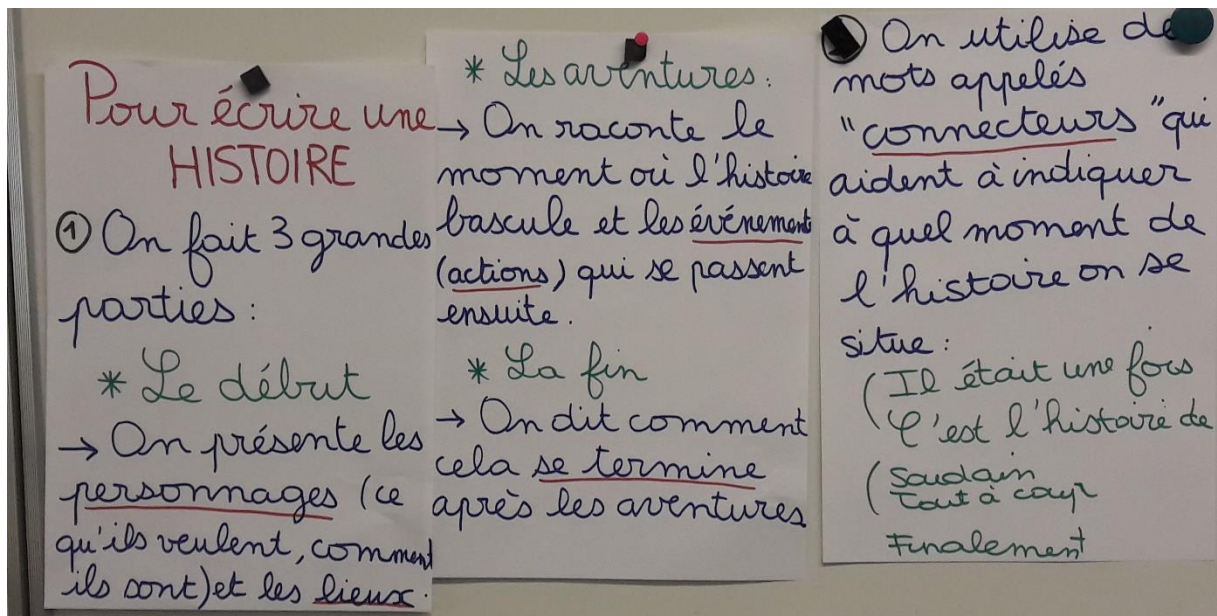 Pour écrire une
HISTOIRE
① On fait 3 grandes
parties :
* Le début
→ On présente les
personnages (ce
qu'ils veulent, comment
ils sont) et les lieux.
* Les aventures :
→ On raconte le
moment où l'histoire
bascule et les événements
(actions) qui se passent
ensuite.
* La fin
→ On dit comment
cela se termine
après les aventures
On utilise de
mots appelés
"connecteurs" qui
aident à indiquer
à quel moment de
l'histoire on se
situe :
( Il était une fois
C'est l'histoire de
( Soudain
Tout à coup
Finalement